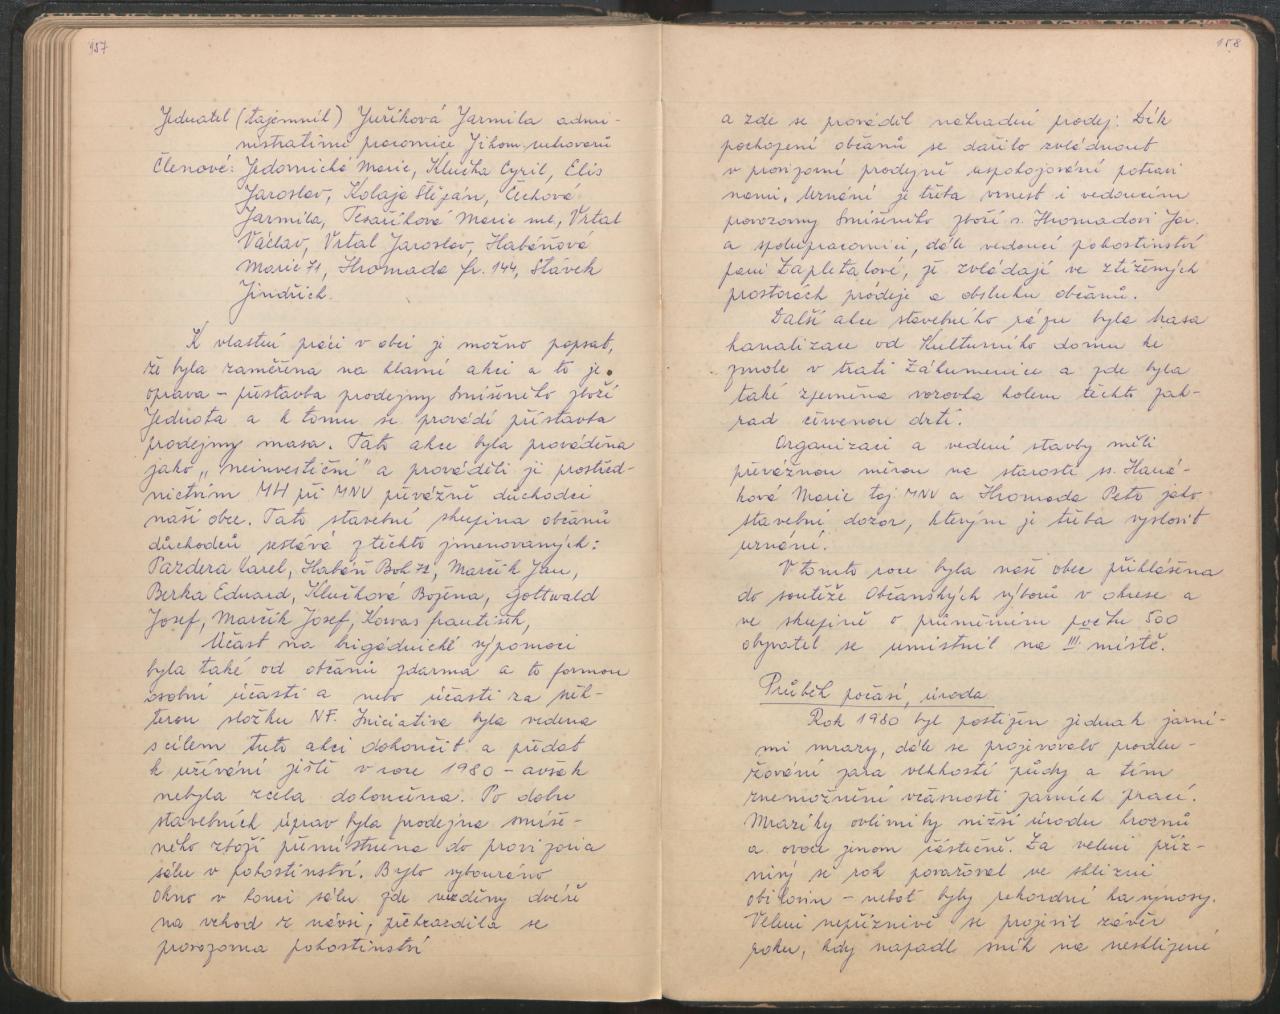 157
Jednatel (tajemník) Juříková Jarmila admi-
nistrativní pracovnice Jihom.
Členové: Jedovnická Marie, Klučka Cyril, Elis
Jaroslav, Kolaja Štěpán, Čechová
Jarmila, Tesaříková Marie ml, Vrtal
Václav, Vrtal Jaroslav, Habáňová
Marie 71, Hromada Fr. 144, Stávek
Jindřich.
K vlastní práci v obci je možno popsat,
že byla zaměřena na hlavní akci a to je
oprava – přístavba prodejny Smíšeného zboží
Jednota a k tomu se provádí přístavba
prodejny masa. Tato akce byla prováděna
jako „neinvestiční" a prováděli ji prostřed-
nictvím MH při MNV převážně důchodci
naší obce. Tato stavební skupina občanů
důchodců sestává z těchto jmenovaných:
Pazdera Karel, Habáň Boh 72, Marčík Jan,
Berka Eduard, Klučková Božena, Gottwald
Josef, Marčík Josef, Korvas František,
Účast na brigádnické výpomoci
byla také od občanů zdarma a to formou
osobní účasti a nebo účasti za něk-
terou složku NF. Iniciativa byla vedena
s cílem tuto akci dokončit a předat
k užívání ještě v roce 1980 – avšak
nebyla zcela dokončena. Po dobu
stavebních úprav byla prodejna smíše-
ného zboží přemístněna do provizoria
sálu v pohostinství. Bylo vybouráno
okno v konci sálu zde dveře
na vchod z návsi, přehradila se
provozovna pohostinství
158
a zde se prováděl náhradní prodej. Dík
pochopení občanů se dařilo zvládnout
v provizorní prodejně uspokojování potravi
nami. Uznání je třeba vznést i vedoucím
provozovny Smíšeného zboží s. Hromadovi Jar.
a spolupracovnici, dále vedoucí pohostinství
paní Zapletalové, jž zvládají ve ztížených
prostorách prodeje a obsluhu občanů.
Další akce stavebního rázu byla trasa
kanalizace od Kulturního domu ke
zmole v trati Záhumenice a zde byla
také zpevněna vozovka kolem těchto zah-
rad červenou drtí.
Organizaci a vedení stavby měli
převážnou mírou na starosti ss. Haná-
ková Marie taj MNV a Hromada Petr jako
stavební dozor, kterým je třeba vyslovit
uznání.
V tomto roce byla naše obec přihlášena
do soutěže Občanských výborů v okrese a
ve skupině o průměrném počtu 500
obyvatel se umístnil na III. místě.
Průběh počasí, úroda
Rok 1980 byl postižen jednak jarní-
mi mrazy, dále se projevovalo prodlu-
žování jara vlhkostí půdy a tím
znemožnění včasnosti jarních prací.
Mrazíky ovlivnily nižší úrodu hroznů
a ovoce jenom částečně. Za velmi příz-
nivý se rok považoval ve sklizni
obilovin – neboť byly rekordní ha výnosy.
Velmi nepříznivě se projevil závěr
roku, kdy napadl sníh na nesklizené